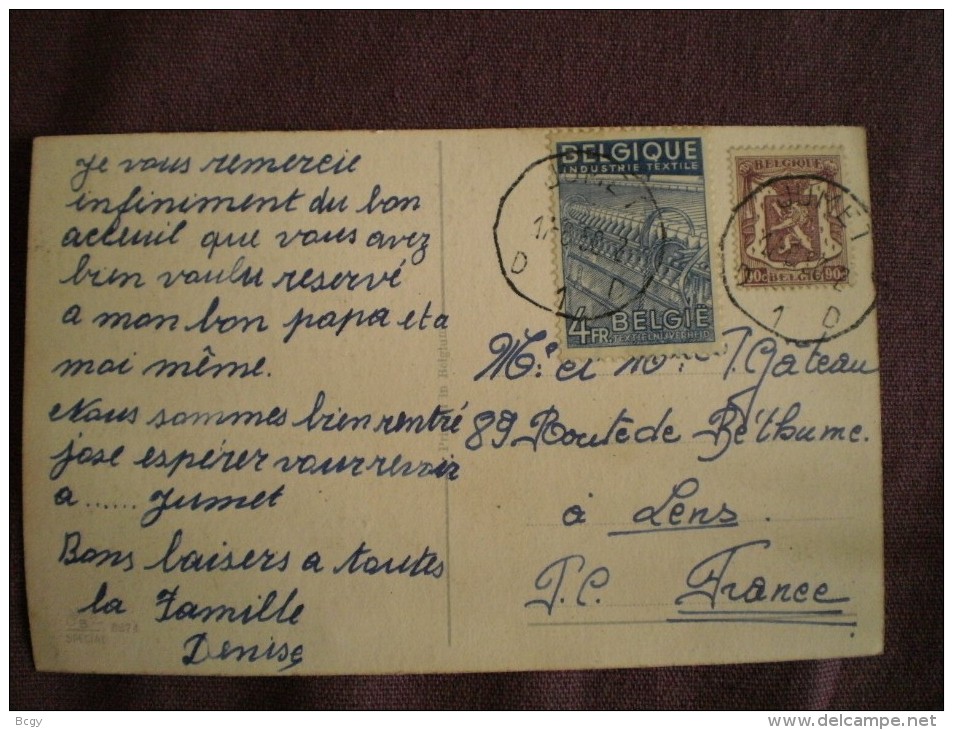 Je vous remercie
infiniment du bon
acceuil que vous avez
bien voulu reservé
a mon bon papa et a
moi même.
Nous sommes bien rentré
jose espérer vous revoir
a ...... Jumet
Bons baisers a toutes
la Famille
Denise
SPECIAL
Printed in Belgium
BELGIQUE
INDUSTRIE TEXTILE
4FR. BELGIË
TEXTIELNIJVERHEID
JUMET
D 1 D
BELGIQUE
90c BELGIË 90c
JUMET
1 D
Mr et Mme T. Gateau
89 Route de Béthume.
à Lens.
P.C. France
Bcgy
delcampe.net